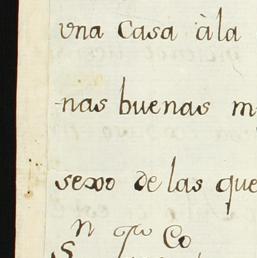 vna Casa à la
-nas buenas m
sexo de las que
n que Co